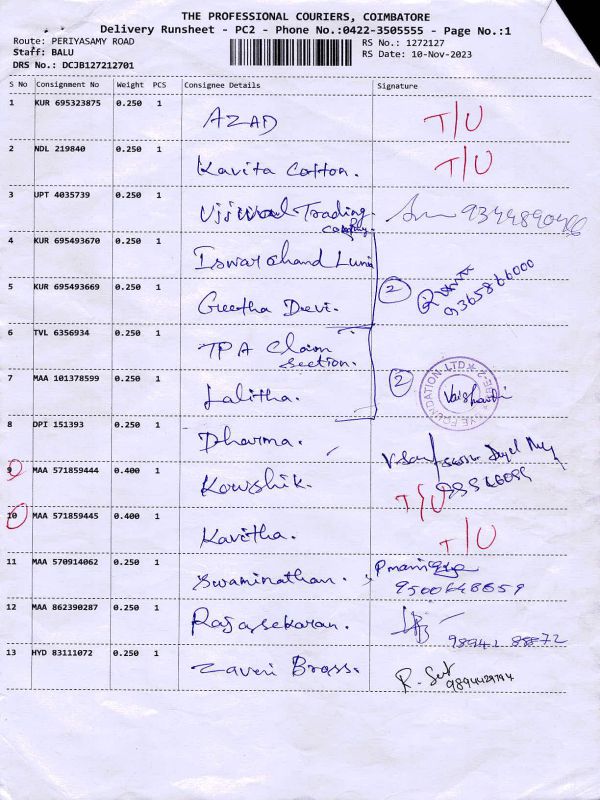 THE PROFESSIONAL COURIERS, COIMBATORE
Delivery Runsheet - PC2 - Phone No.:0422-3505555 - Page No.:1
Route: PERIYASAMY ROAD
RS No.: 1272127
Staff: BALU
RS Date: 10-Nov-2023
DRS No.: DCJB127212701
S No Consignment No Weight PCS Consignee Details Signature
1 KUR 695323875 0.250 1 AZAD T/U
2 NDL 219840 0.250 1 Kavita Cotton. T/U
3 UPT 4035739 0.250 1 Trading
4 KUR 695493670 0.250 1 Iswarchand
5 KUR 695493669 0.250 1 Geetha Devi. 2 9365866000
6 TVL 6356934 0.250 1 TPA Claim
section.
7 MAA 101378599 0.250 1 Lalitha. 2 Vaishnavi
EYE FOUNDATION LTD
8 DPI 151393 0.250 1 Dharma.
9 MAA 571859444 0.400 1 Kowshik. T/U
10 MAA 571859445 0.400 1 Kavitha. T/U
11 MAA 570914062 0.250 1 Swaminathan.
12 MAA 862390287 0.250 1 Rajasekaran.
13 HYD 83111072 0.250 1 Zaveri Brass.